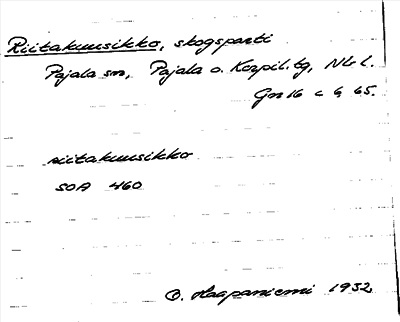 Riitakuusikko, skogsparti
Pajala sn, Pajala o. Korpil. tg, Nb l.
Gn 16 c G 65.
riitakuusikko
SOA 460
O. Haapaniemi 1932